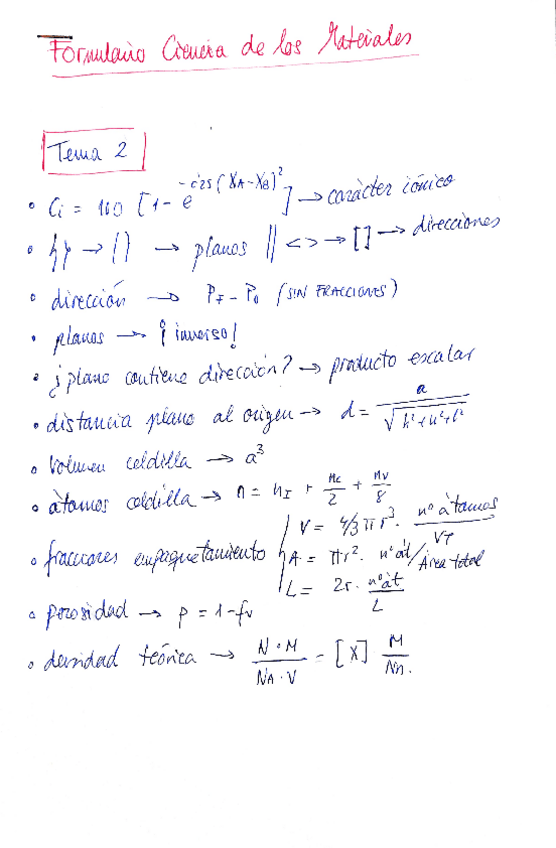 Formulario Ciencia de los Materiales
Tema 2
• Ci = 100 [1 - e^{-0'25(XA-XB)^2}] → carácter iónico
• {} → () → planos || <> → [] → direcciones
• dirección → PF - P0 (SIN FRACCIONES)
• planos → ¡inverso!
• ¿plano contiene dirección? → producto escalar
• distancia plano al origen → d = a / √(h²+k²+l²)
• Volumen celdilla → a³
• àtomos celdilla → n = nI + nc/2 + nv/8
• fracciones empaquetamiento { V = 4/3 π r³ · nº àtomos / VT
A = π r² · nº àt / Área total
L = 2r · nº àt / L
• porosidad → p = 1 - fv
• densidad teórica → N · M / NA · V = [X] M / NA.